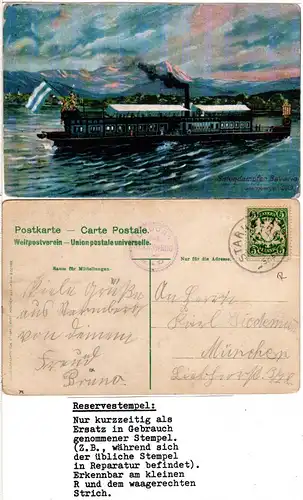 Salondampfer Bavaria
Postkarte – Carte Postale.
Weltpostverein – Union postale universelle.
Raum für Mitteilungen.
Nur für die Adresse.
STAR
Viele Grüße
aus Starnberg
von deinem
Freund
Bruno.
An Herrn
Karl
München
R
Reservestempel:
Nur kurzzeitig als
Ersatz in Gebrauch
genommener Stempel.
(Z.B., während sich
der übliche Stempel
in Reparatur befindet).
Erkennbar am kleinen
R und dem waagerechten
Strich.